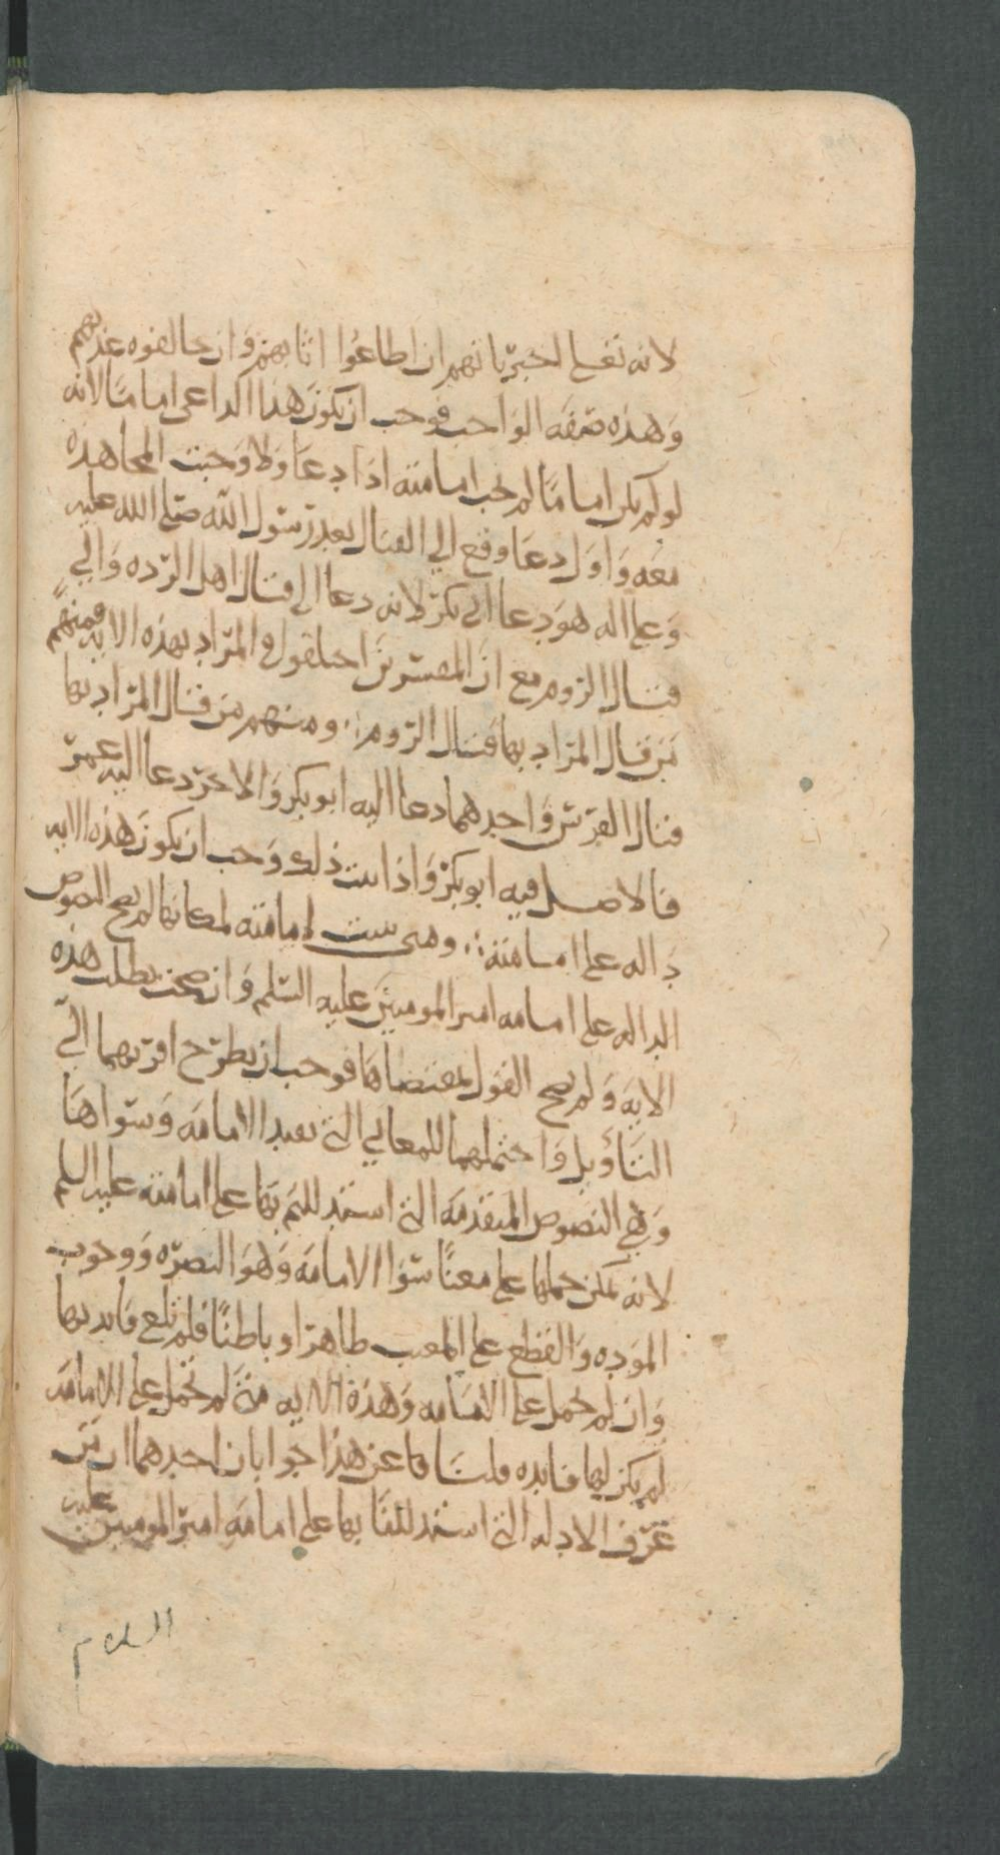 لانه تعلى اخبر بانهم ان اطاعوا اثابهم وان خالفوه عذبهم
وهذه صفه الواجب فوجب ان يكون هذا الداعى اماما لانه
لو لم يكن اماما لم تجب امامته اذا دعا ولا وجبت المجاهده
معه واول دعا وقع الى القتال بعد رسول الله صلى الله عليه
وعلى اله هو دعا ابى بكر لانه دعا الى قتال اهل الرده والى
قتال الروم مع ان المفسرين اختلفوا فى المراد بهذه الايه فمنهم
من قال المراد بها قتال الروم ومنهم من قال المراد بها
قتال الفرس واحدهما دعا اليه ابو بكر والاخر دعا اليه عمر
فالاصل فيه ابو بكر واذا ثبت ذلك وجب ان يكون هذه الايه
داله على امامته ومتى ثبت امامته لمكانها لم تصح النصوص
الداله على امامه امير المومنين عليه السلم وان صحت بطلت هذه
الايه ولم يصح القول بمقتضاها فوجب ان يطرح اقربهما الى
التاويل واحتملهما للمعاني التى تفيد الامامه وسواها
وهي النصوص المتقدمه التى استدللتم بها على امامته عليه السلم
لانه يمكن حملها على معنا سوا الامامه وهو النصره ووجوب
الموده والقطع على المغيب ظاهرا وباطنا فلم تلغ فايدتها
وان لم تحمل على الامامه وهذه الايه متى لم تحمل على الامامه
لم يكن لها فايده قلنا عن هذا جوابان احدهما ان من
عرف الادله التى استدللنا بها على امامه امير المومنين عليه
السلام